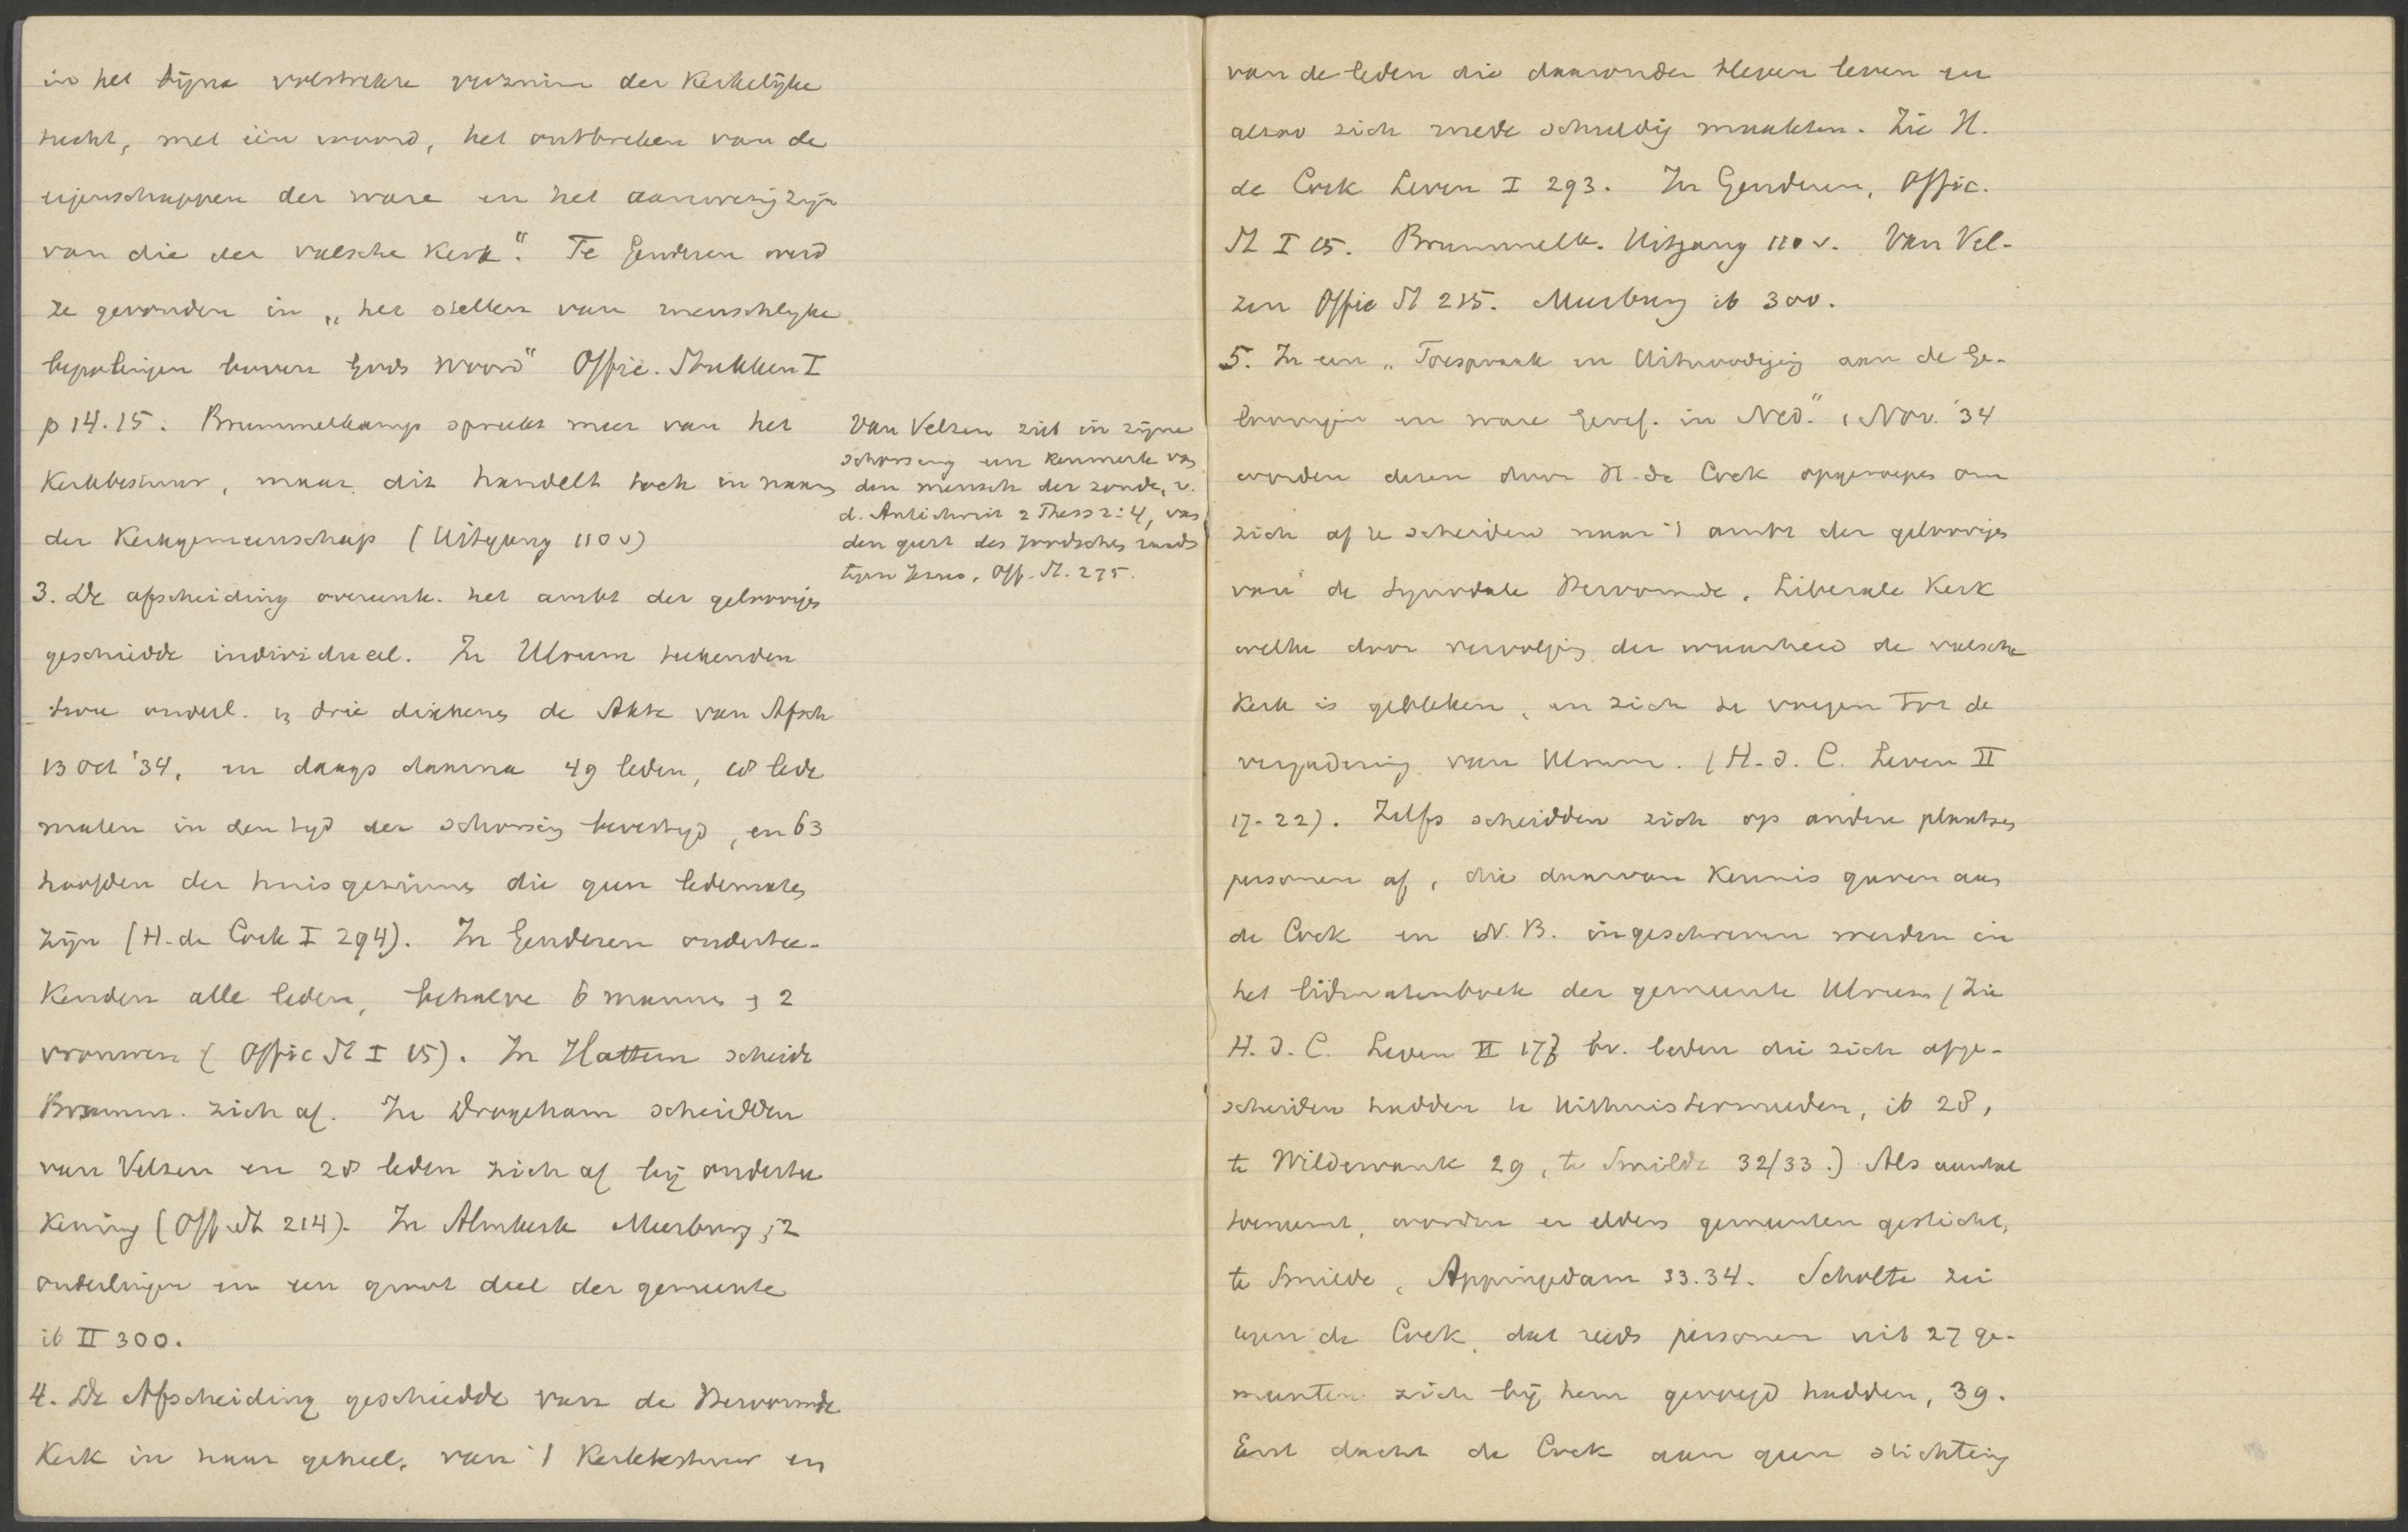 in het bijna volstrekte verzuim der Kerkelijke
tucht, met één woord, het ontbreken van de
eigenschappen der ware en het aanwezig zijn
van die der valsche Kerk". Te Genderen werd
ze gevonden in „het stellen van menschlijke
bepalingen boven Gods Woord" Offic. Stukken I
p 14.15. Brummelkamp spreekt meer van het
Kerkbestuur, maar dit handelt toch in naam
der Kerkgemeenschap (Uitgang 110 v)
3. De afscheiding overeenk. het ambt der geloovigen
geschiedde individueel. In Ulrum teekenden
twee ouderl. en drie diakenen de Akte van Afsch
13 Oct '34, en daags daarna 49 leden, 68 lede
maten in den tyd der schorsing bevestigd, en 63
hoofden der huisgezinnen die geen ledematen
zijn (H. de Cock I 294). In Genderen ondertee-
kenden alle leden, behalve 6 mannen en 2
vrouwen (Offic St I 15). In Hattem scheidde
Brumm. zich af. In Drogeham scheidden
van Velzen en 28 leden zich af bij ondertee
kening (Off. St 214). In Almkerk Meerburg, 2
ouderlingen en een groot deel der gemeente
ib II 300.
4. De Afscheiding geschiedde van de Hervormde
Kerk in haar geheel, van 't Kerkbestuur en
Van Velzen ziet in zijne
schorsing een kenmerk van
den mensch der zonde, v.
d. Antichrist 2 Thess 2:4, van
den geest des Joodschen raads
tegen Jezus, Off. St. 275.
van de leden die daaronder bleven leven en
alzoo zich mede schuldig maakten. Zie H.
de Cock Leven I 293. In Genderen, Offic.
St I 15. Brummelk. Uitgang 110 v. Van Vel-
zen Offic St 215. Meerburg ib 300.
5. In een „Toespraak en Uitnoodiging aan de Ge-
loovigen en ware Geref. in Ned." 1 Nov. '34
worden dezen door H. de Cock opgeroepen om
zich af te scheiden naar 't ambt der geloovigen
van de Synodale Hervormde, Liberale Kerk
welke door vervolging der waarheid de valsche
Kerk is gebleken, en zich te voegen tot de
vergadering van Ulrum. (H. d. C. Leven II
17-22). Zelfs scheidden zich op andere plaatsen
personen af, die daarvan kennis gaven aan
de Cock en N.B. ingeschreven werden in
het lidmatenboek der gemeente Ulrum (Zie
H. d. C. Leven II 17 bv. leden die zich afge-
scheiden hadden te Uithuistermeeden, ib 28,
te Wildervank 29, te Smilde 32/33.) Als aantal
toenemt, worden er elders gemeenten gesticht,
te Smilde, Appingedam 33.34. Scholte zei
tegen de Cock, dat reeds personen uit 27 ge-
meenten zich bij hem gevoegd hadden, 39.
Eerst dacht de Cock aan geen stichting